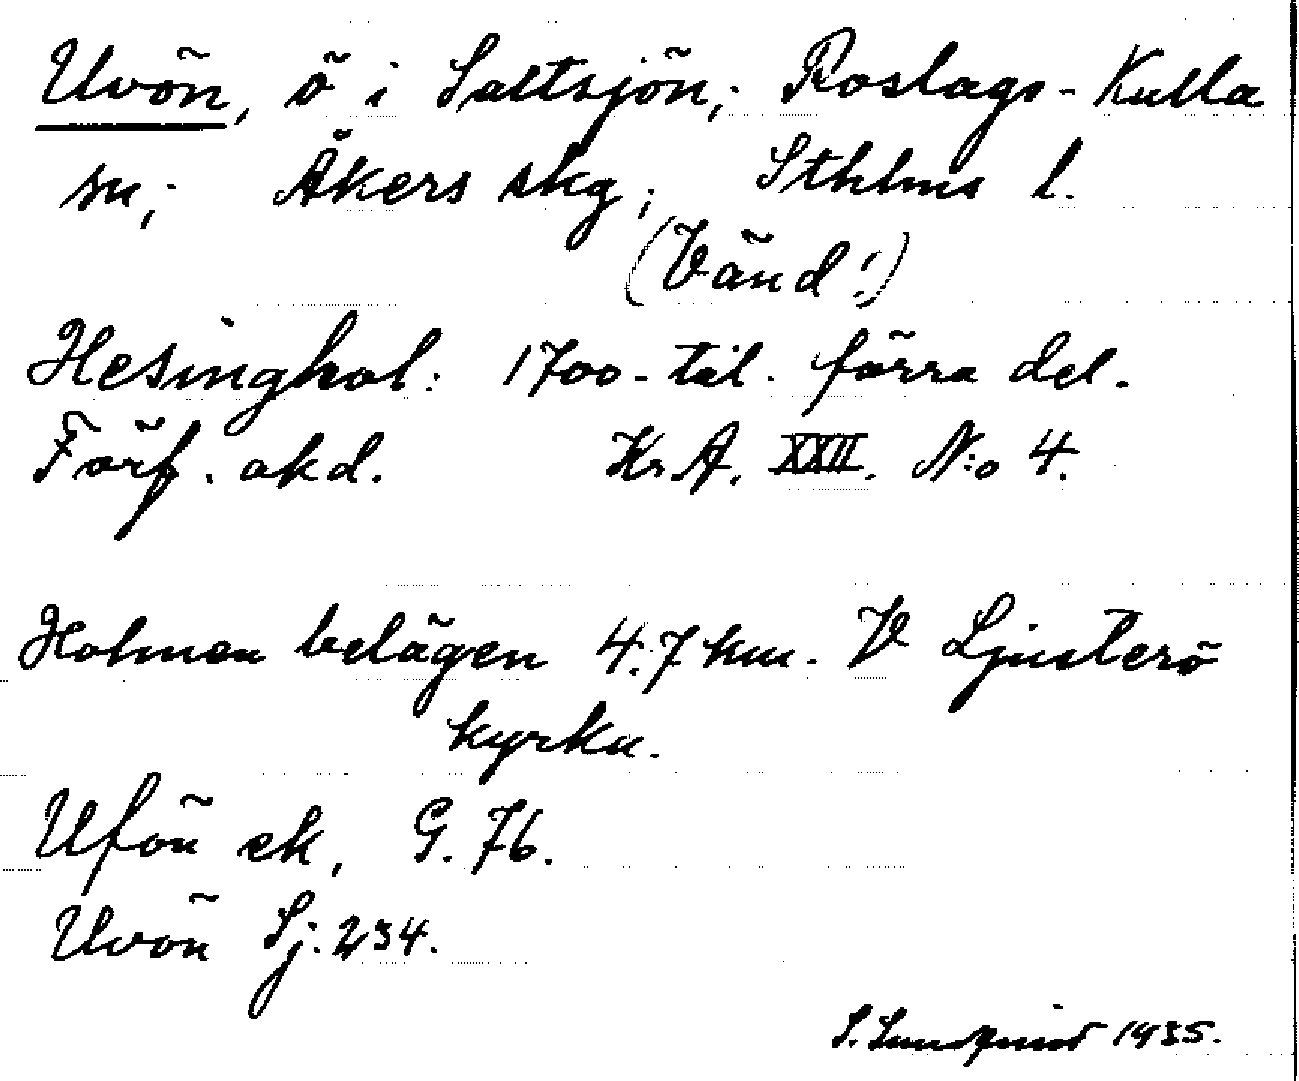 Uvön, ö i Saltsjön; Roslags-Kulla
sn; Åkers skg; Sthlms l.
(Vänd!)
Hesinghol: 1700-tal. förra del.
Förf. okd. Kr.A. XXII. N:o 4.
Holmen belägen 4.7 km. V Ljusterö
kyrka.
Ufön ek, G. 76.
Uvön Sj. 234.
S. Lundqvist 1935.